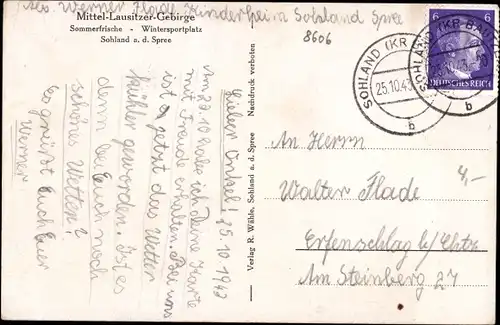 Abs. Werner Flade, Kinderheim Sohland Spree
Mittel-Lausitzer-Gebirge
Sommerfrische - Wintersportplatz
Sohland a. d. Spree
8606
Lieber Onkel! 25.10 1943
Am 20.10 habe ich Deine Karte
mit Freude erhalten. Bei uns
ist jetzt das Wetter
kühler geworden. Ist es
denn bei Euch noch
schönes Wetter?
Es grüßt Euch Euer
Werner
Verlag R. Wähle, Sohland a. d. Spree Nachdruck verboten
SOHLAND (KR
25.10.43
b
SOHLAND (KR BAU
b
6 6
DEUTSCHES REICH
An Herrn
Walter Flade
4,-
Erfenschlag b/Chtz.
Am Steinberg 27